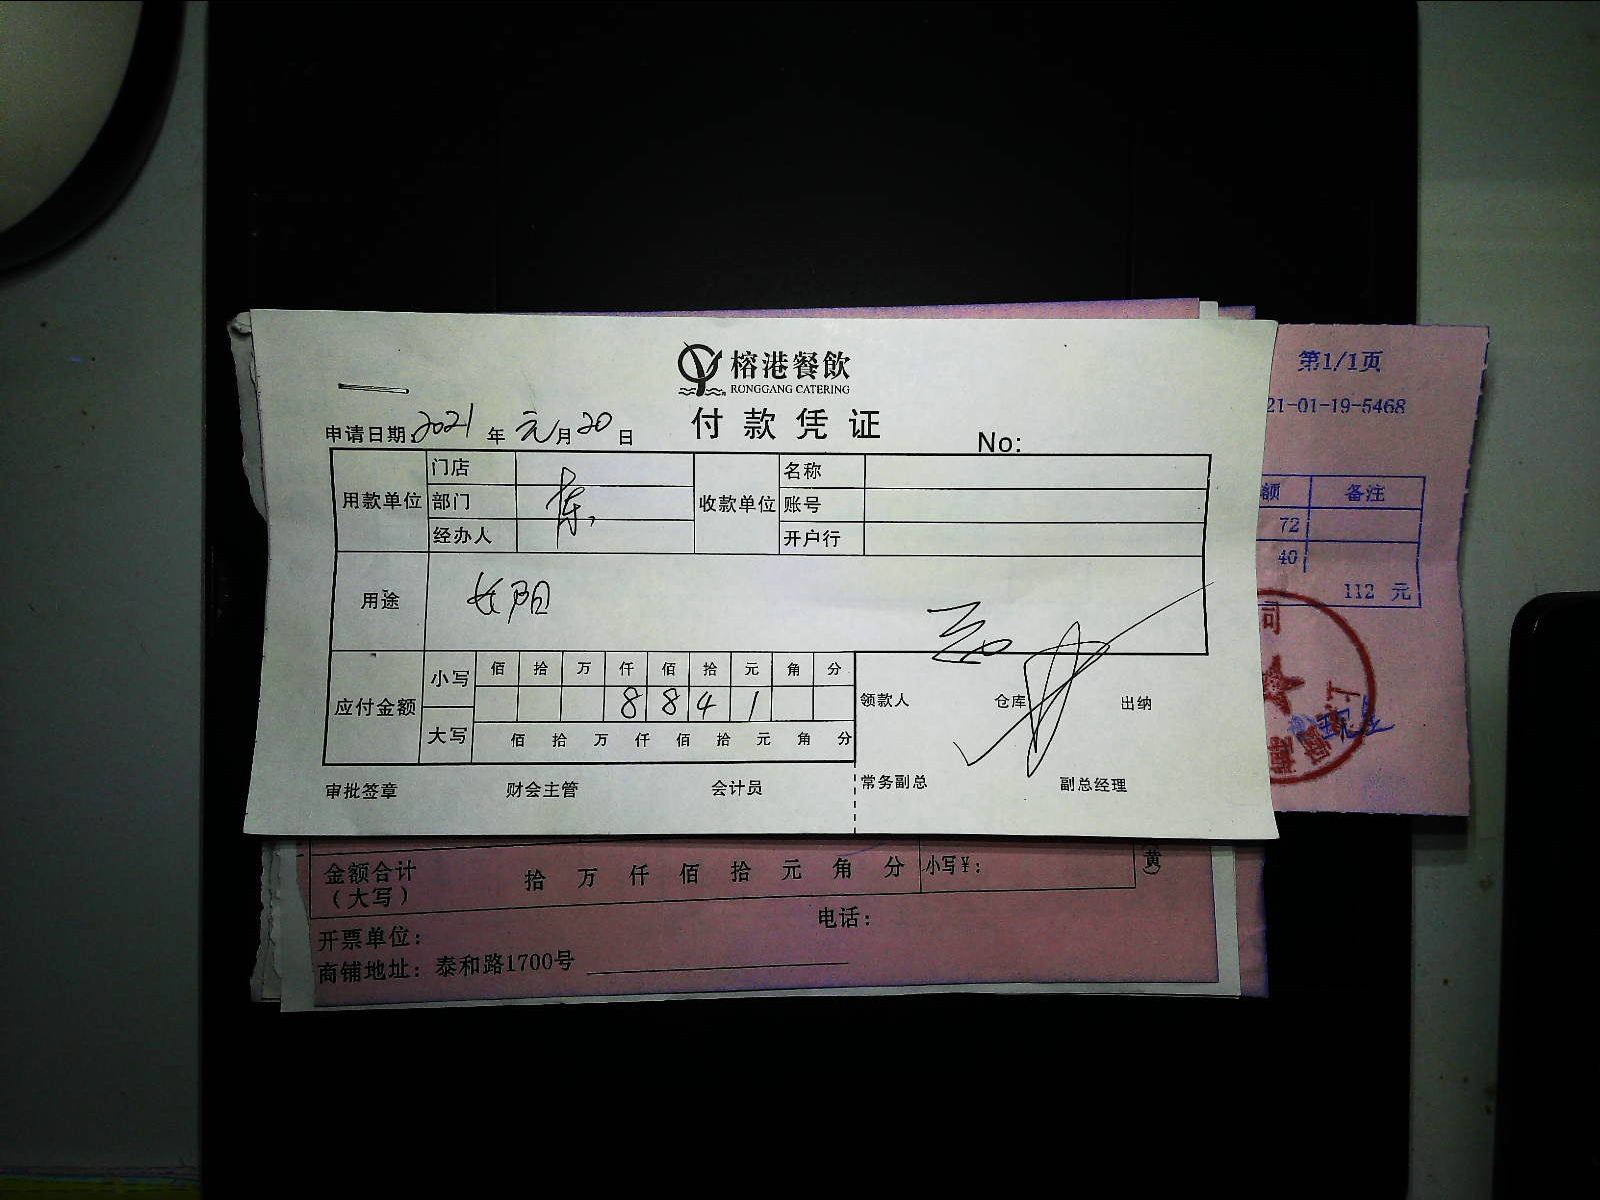 榕港餐飲
RONGGANG CATERING
付款凭证
申请日期:2021年元月20日
No:
用款单位
门店
部门
经办人
收款单位
名称
账号
开户行
用途
长阳
应付金额
小写
佰 拾 万 仟 佰 拾 元 角 分
8 8 4 1
大写
佰 拾 万 仟 佰 拾 元 角 分
领款人 仓库 出纳
审批签章 财会主管 会计员 常务副总 副总经理
第1/1页
21-01-19-5468
额 备注
72
40
112 元
司
金额合计
(大写)
拾 万 仟 佰 拾 元 角 分 小写¥:
黄
开票单位: 电话:
商铺地址: 泰和路1700号